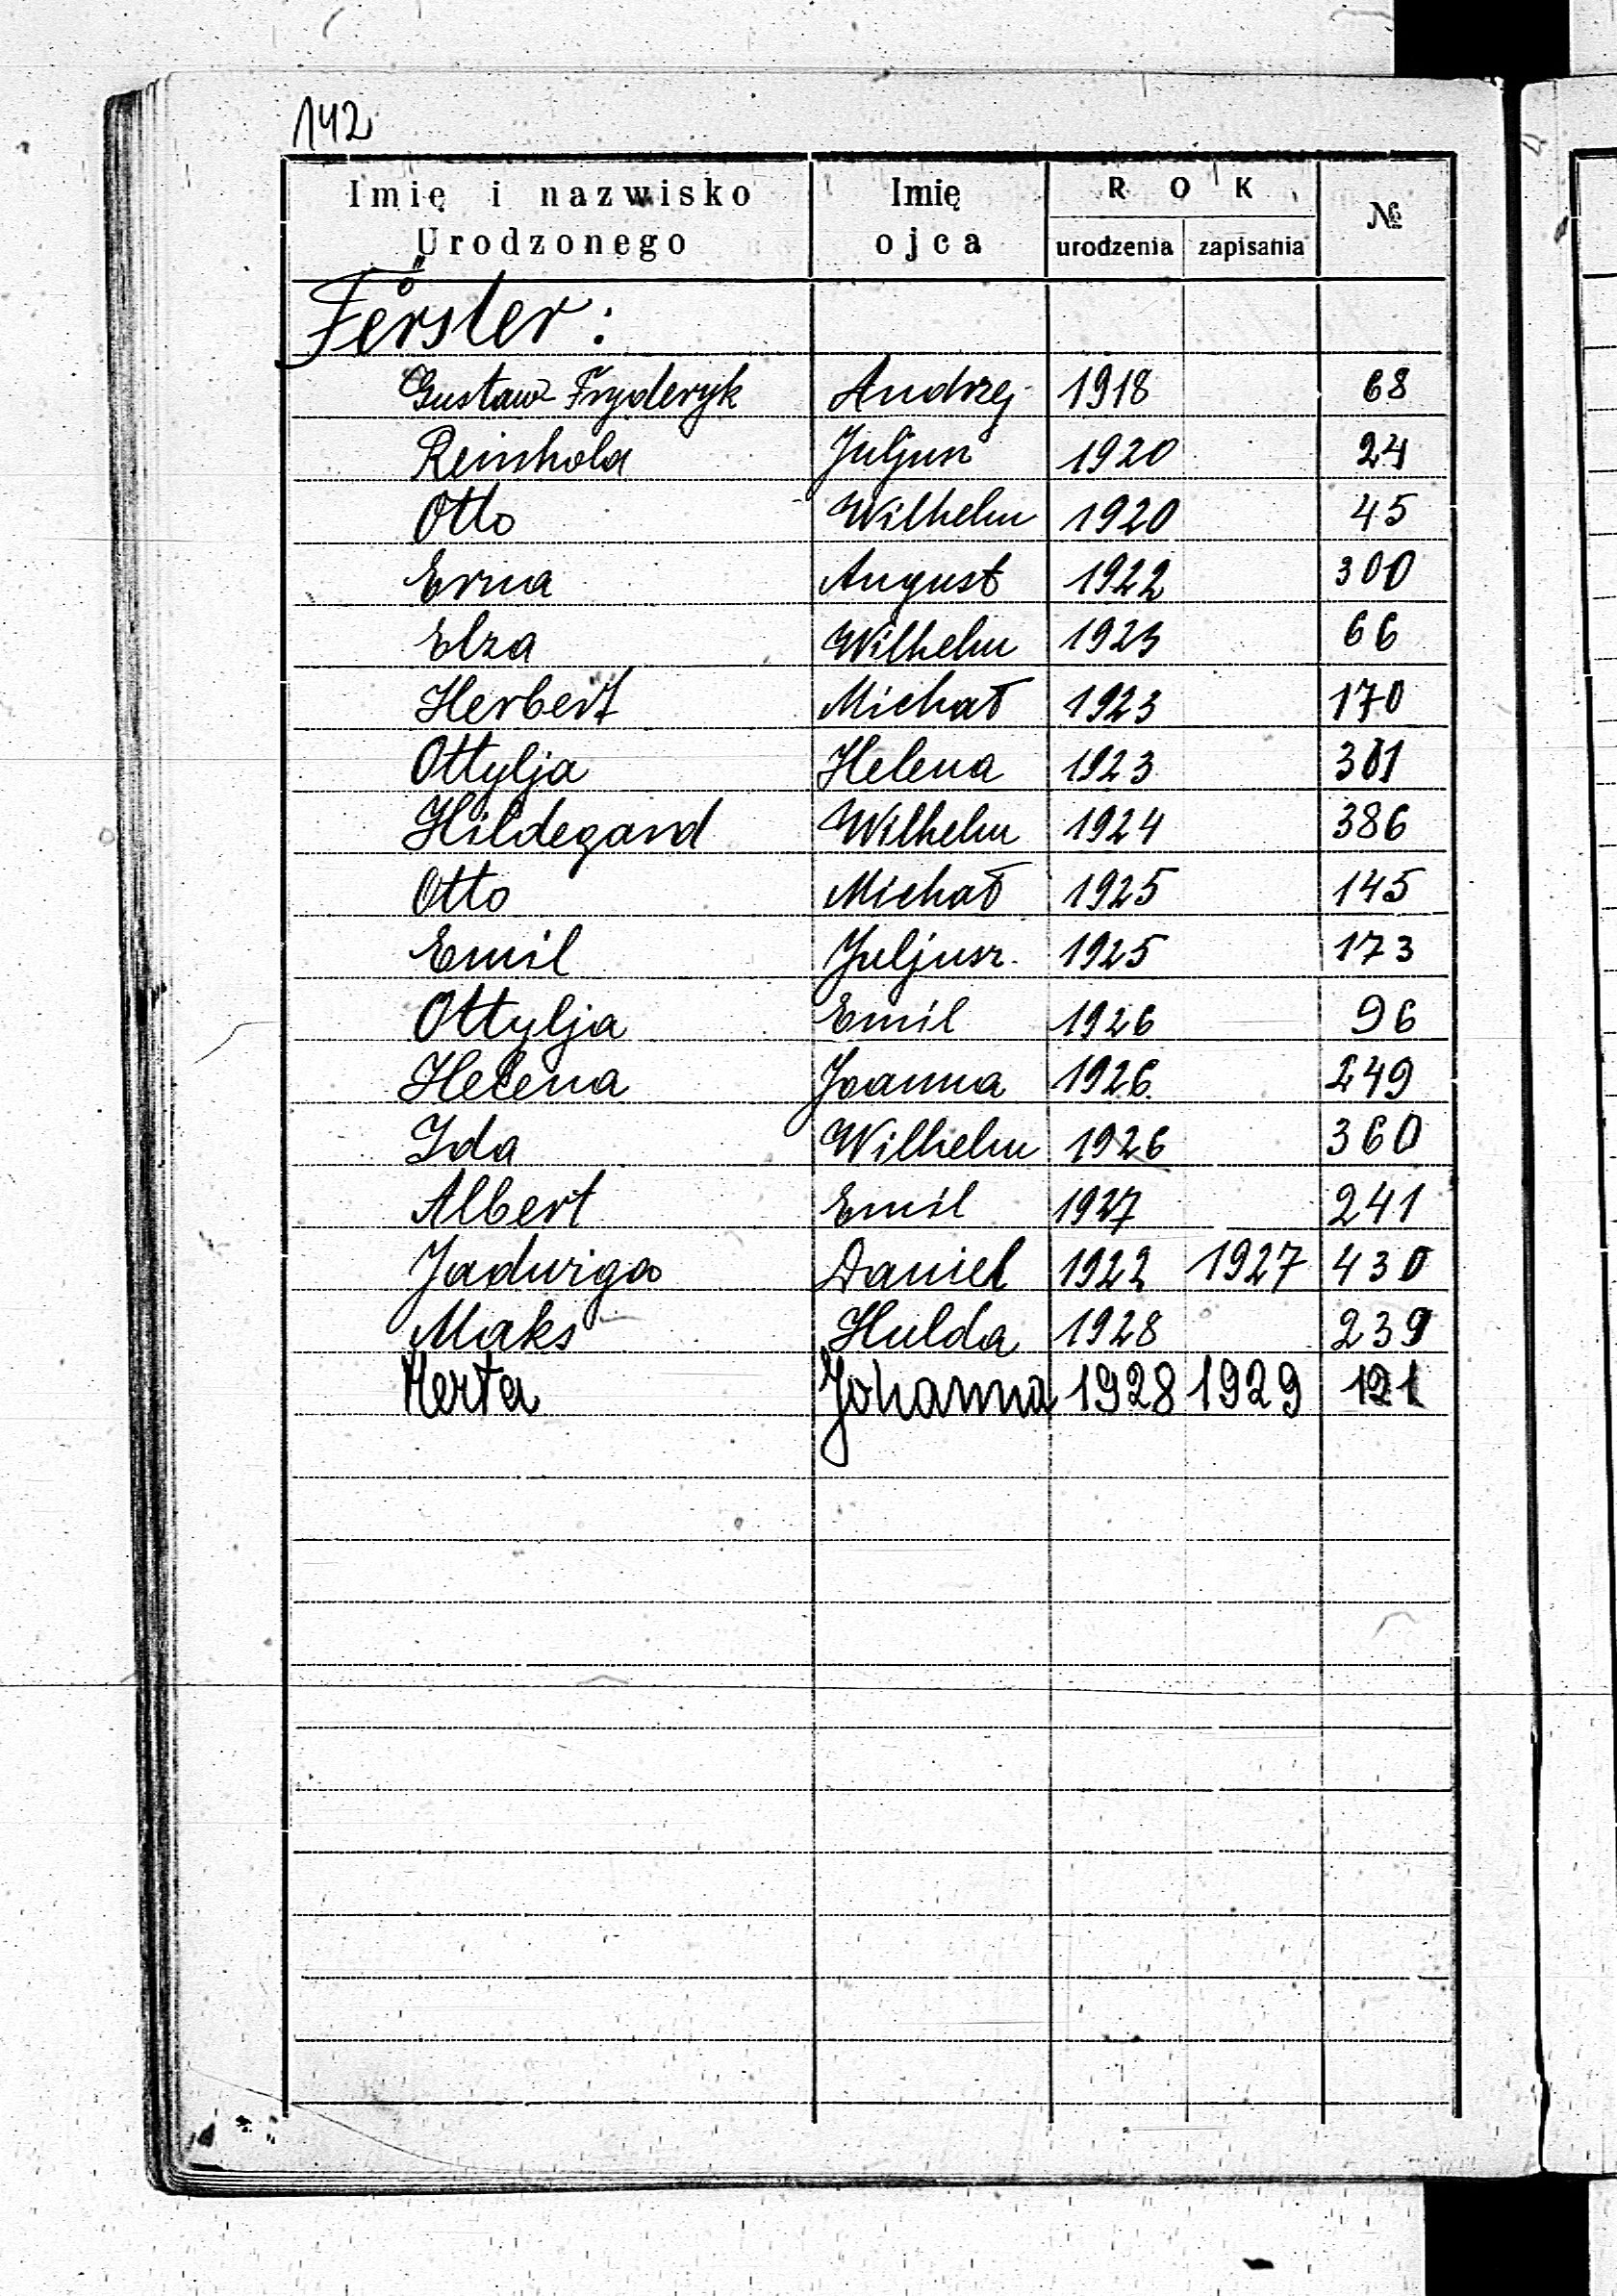 142
Imię i nazwisko Urodzonego | Imię ojca | ROK urodzenia | zapisania | №
Ferster: ö
Gustaw Fryderyk | Andrzej | 1918 | | 68
Reinhold | Juljusz | 1920 | | 24
Otto | Wilhelm | 1920 | | 45
Erna | August | 1922 | | 300
Elza | Wilhelm | 1923 | | 66
Herbert | Michał | 1923 | | 170
Ottylja | Helena | 1923 | | 301
Hildegard | Wilhelm | 1924 | | 386
Otto | Michał | 1925 | | 145
Emil | Juljusz | 1925 | | 173
Ottylja | Emil | 1926 | | 96
Helena | Joanna | 1926 | | 249
Ida | Wilhelm | 1926 | | 360
Albert | Emil | 1927 | | 241
Jadwiga | Daniel | 1922 | 1927 | 430
Maks | Hulda | 1928 | | 239
Herta | Johanna | 1928 | 1929 | 121